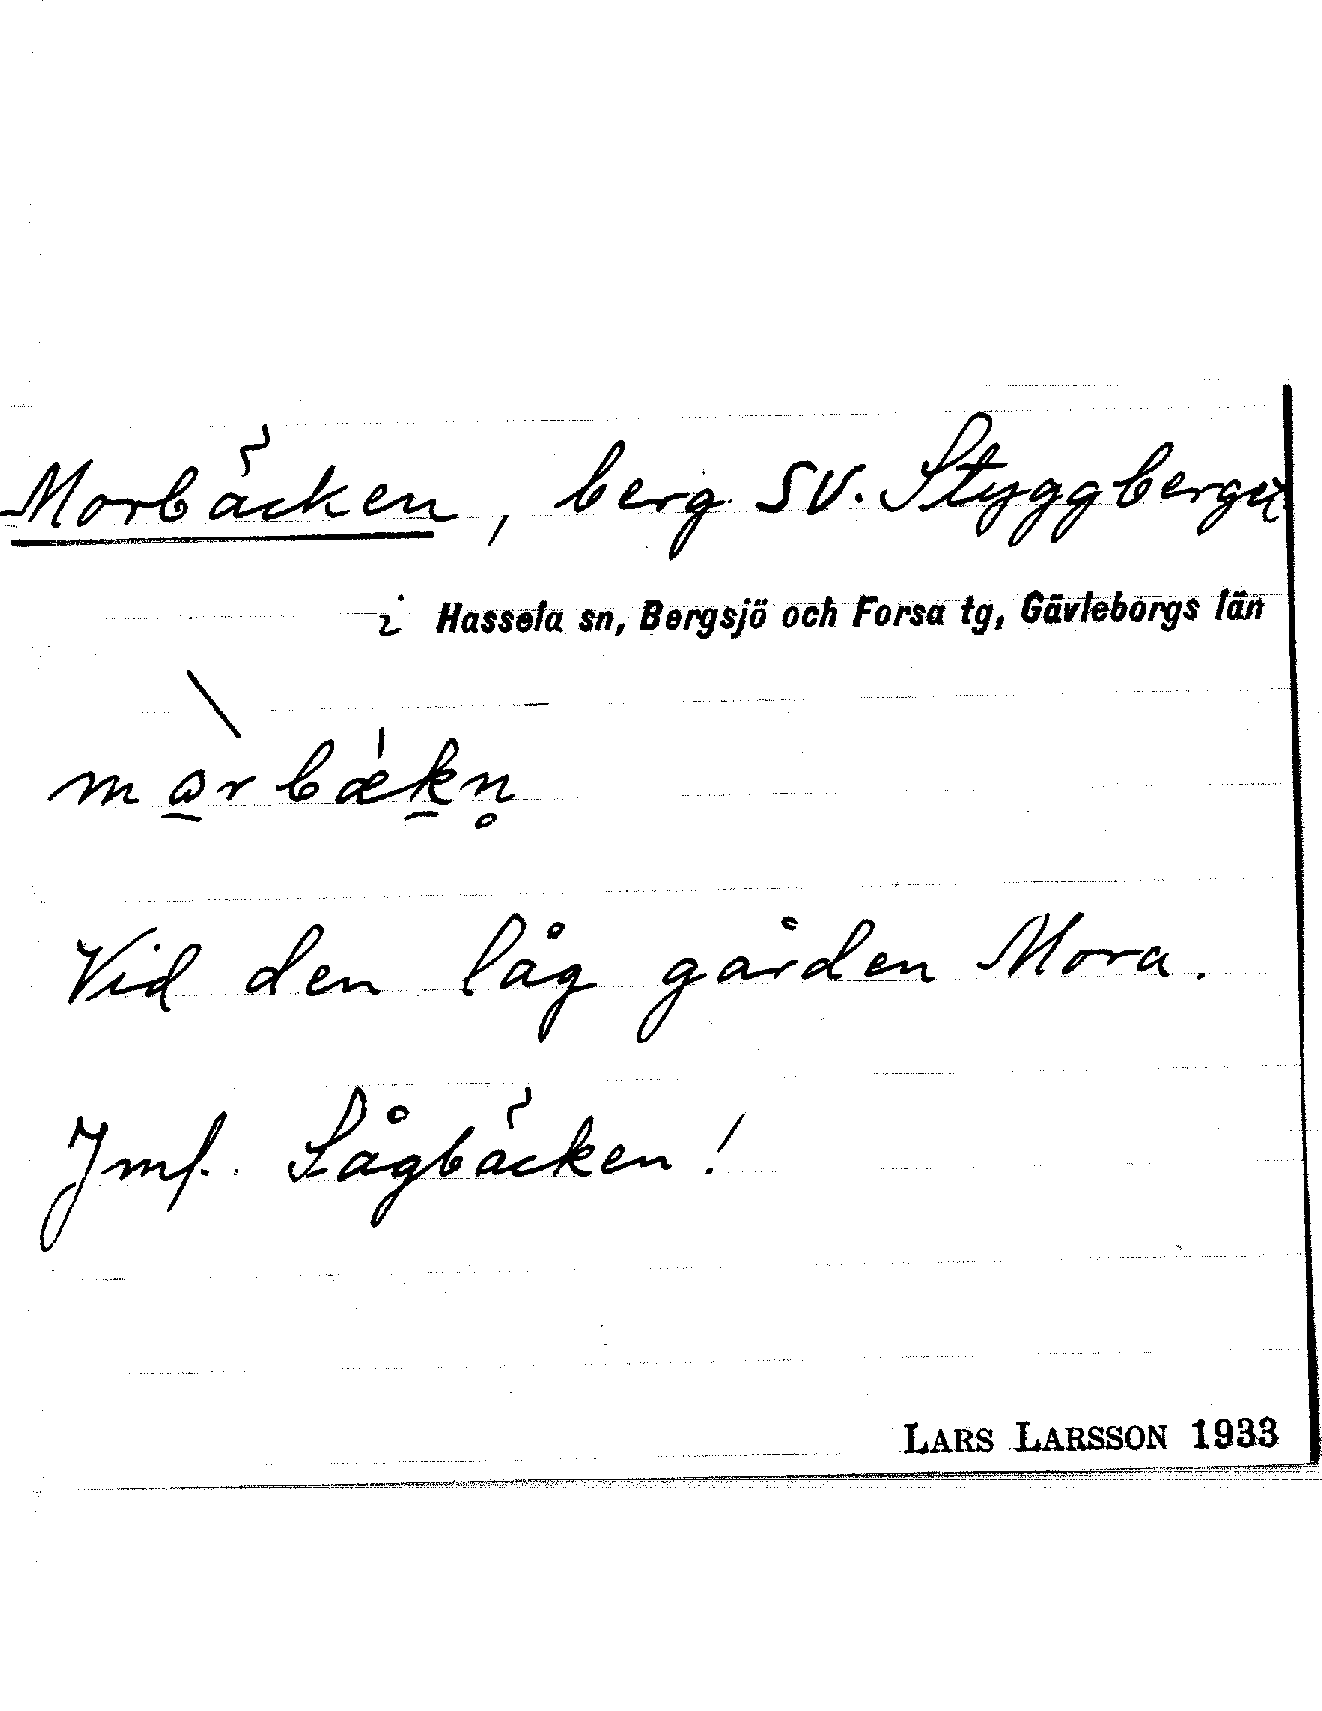 Morbäcken, berg SV. Styggberget
i Hassela sn, Bergsjö och Forsa tg, Gävleborgs län
Vid den låg gården Mora.
Jmf. Sågbäcken!
LARS LARSSON 1933